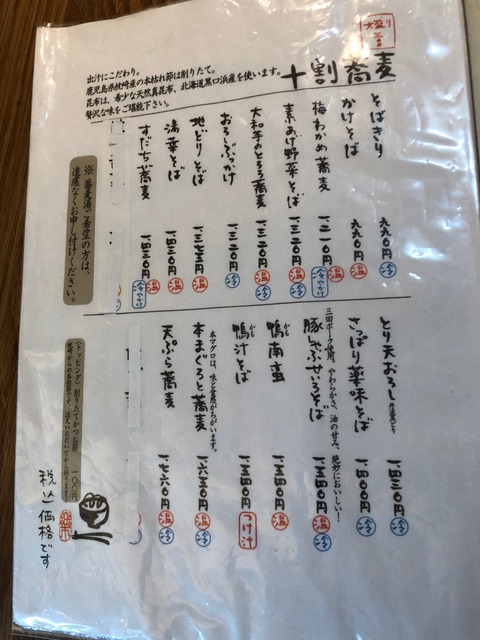 大盛り
十割蕎麦
出汁にこだわり。
鹿児島県枕崎産の本枯れ節は削りたて。
昆布は、希少な天然真昆布、北海道黒口浜産を使います。
贅沢な味をご堪能下さい。
そばきり 九九〇円 冷
かけそば 九九〇円 温
梅わかめ蕎麦 一二一〇円 温 冷やかけ
素あげ野菜そば 一三二〇円 温 冷
大和芋のとろろ蕎麦 一三二〇円 温 冷
おろしぶっかけ 一三二〇円 冷
地どりそば 一三七五円 温
湯葉そば 一四三〇円 温
すだち蕎麦 一四三〇円 温 冷やかけ
※ 蕎麦湯ご希望の方は、
遠慮なくお申し付けください。
とり天おろし 一四三〇円 冷
さっぱり薬味そば 一一〇〇円 冷
三田ポーク使用。やわらかさ、油の甘み、絶妙においしい！
豚しゃぶせいろそば 一五四〇円 温 冷
鴨南蛮 一五四〇円 温
かも
鴨汁そば 一五四〇円 つけ汁
かも
本マグロは、味と食感がちがいます。
本まぐろと蕎麦 一六五〇円 温 冷
天ぷら蕎麦 一七六〇円 温 冷
【トッピング】削りたてかつお節 一〇〇円
税込価格です